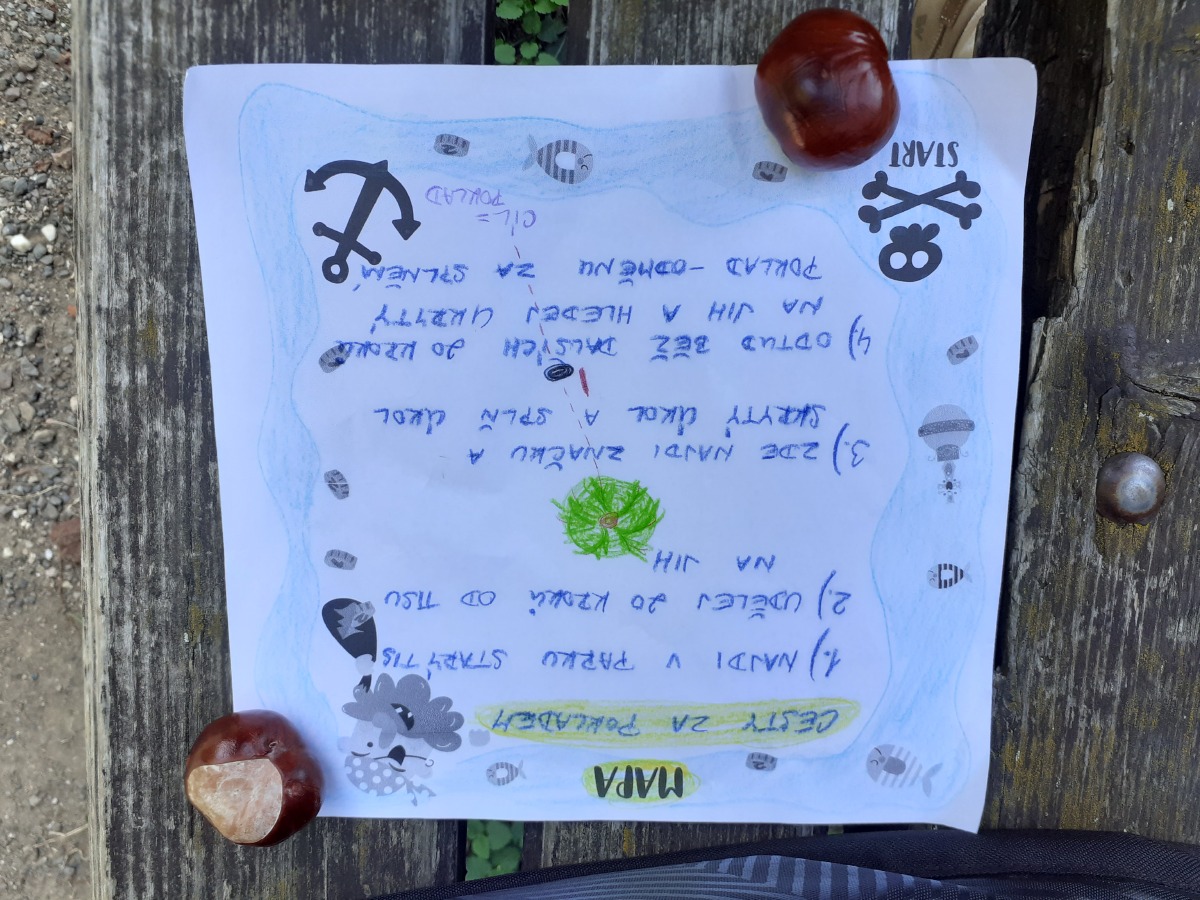 MAPA
CESTY ZA POKLADEM
1.) NAJDI V PARKU STARÝ TIS
2.) UDĚLEJ 20 KROKŮ OD TISU
NA JIH
3.) ZDE NAJDI ZNAČKU A
SKRYTÝ ÚKOL A SPLŇ ÚKOL
4) ODTUD BĚŽ DALŠÝCH 20 KROKŮ
NA JIH A HLEDEJ UKRYTÝ
POKLAD - ODMĚNU ZA SPLNĚNÍ
CÍL =
POKLAD
START